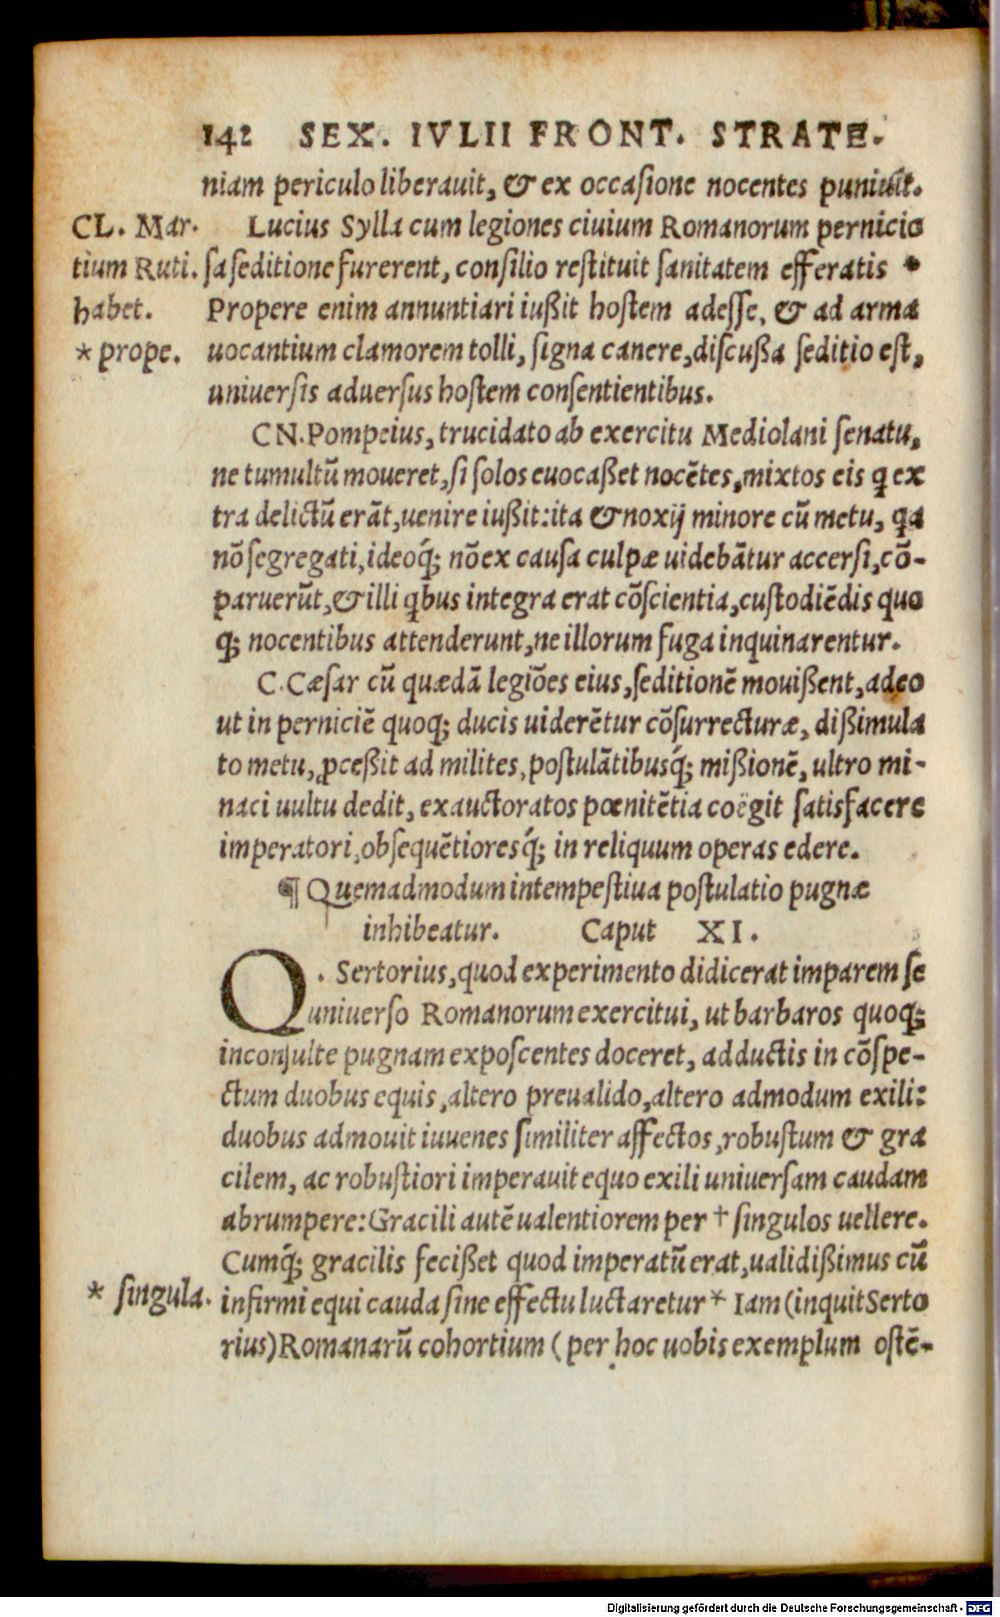 142 SEX. IVLII FRONT. STRATE.
niam periculo liberauit, & ex occasione nocentes puniuit.
CL. Mar-
tium Ruti.
habet.
* prope.
Lucius Sylla cum legiones ciuium Romanorum pernicio
sa seditione furerent, consilio restituit sanitatem efferatis *
Propere enim annuntiari iußit hostem adesse, & ad arma
uocantium clamorem tolli, signa canere, discußa seditio est,
uniuersis aduersus hostem consentientibus.
CN. Pompeius, trucidato ab exercitu Mediolani senatu,
ne tumultū moueret, si solos euocaßet nocētes, mixtos eis ꝗ ex
tra delictū erāt, uenire iußit: ita & noxij minore cū metu, ꝗa
nō segregati, ideoq́; nō ex causa culpæ uidebātur accersi, cō-
paruerūt, & illi ꝗbus integra erat cōscientia, custodiēdis quo
q; nocentibus attenderunt, ne illorum fuga inquinarentur.
C. Cæsar cū quædā legiōes eius, seditionē mouißent, adeo
ut in perniciē quoq; ducis uiderētur cōsurrecturæ, dißimula
to metu, ꝓceßit ad milites, postulātibusq́; mißionē, ultro mi-
naci uultu dedit, exauctoratos pœnitētia coëgit satisfacere
imperatori, obsequētioresq́; in reliquum operas edere.
¶ Quemadmodum intempestiua postulatio pugnæ
inhibeatur. Caput XI.
Q. Sertorius, quod experimento didicerat imparem se
uniuerso Romanorum exercitui, ut barbaros quoq;
inconsulte pugnam exposcentes doceret, adductis in cōspe-
ctum duobus equis, altero preualido, altero admodum exili:
duobus admouit iuuenes similiter affectos, robustum & gra
cilem, ac robustiori imperauit equo exili uniuersam caudam
abrumpere: Gracili autē ualentiorem per † singulos uellere.
Cumq́; gracilis fecißet quod imperatū erat, ualidißimus cū
* singula.
infirmi equi cauda sine effectu luctaretur * Iam (inquit Serto
rius) Romanarū cohortium (per hoc uobis exemplum ostē-
Digitalisierung gefördert durch die Deutsche Forschungsgemeinschaft - DFG